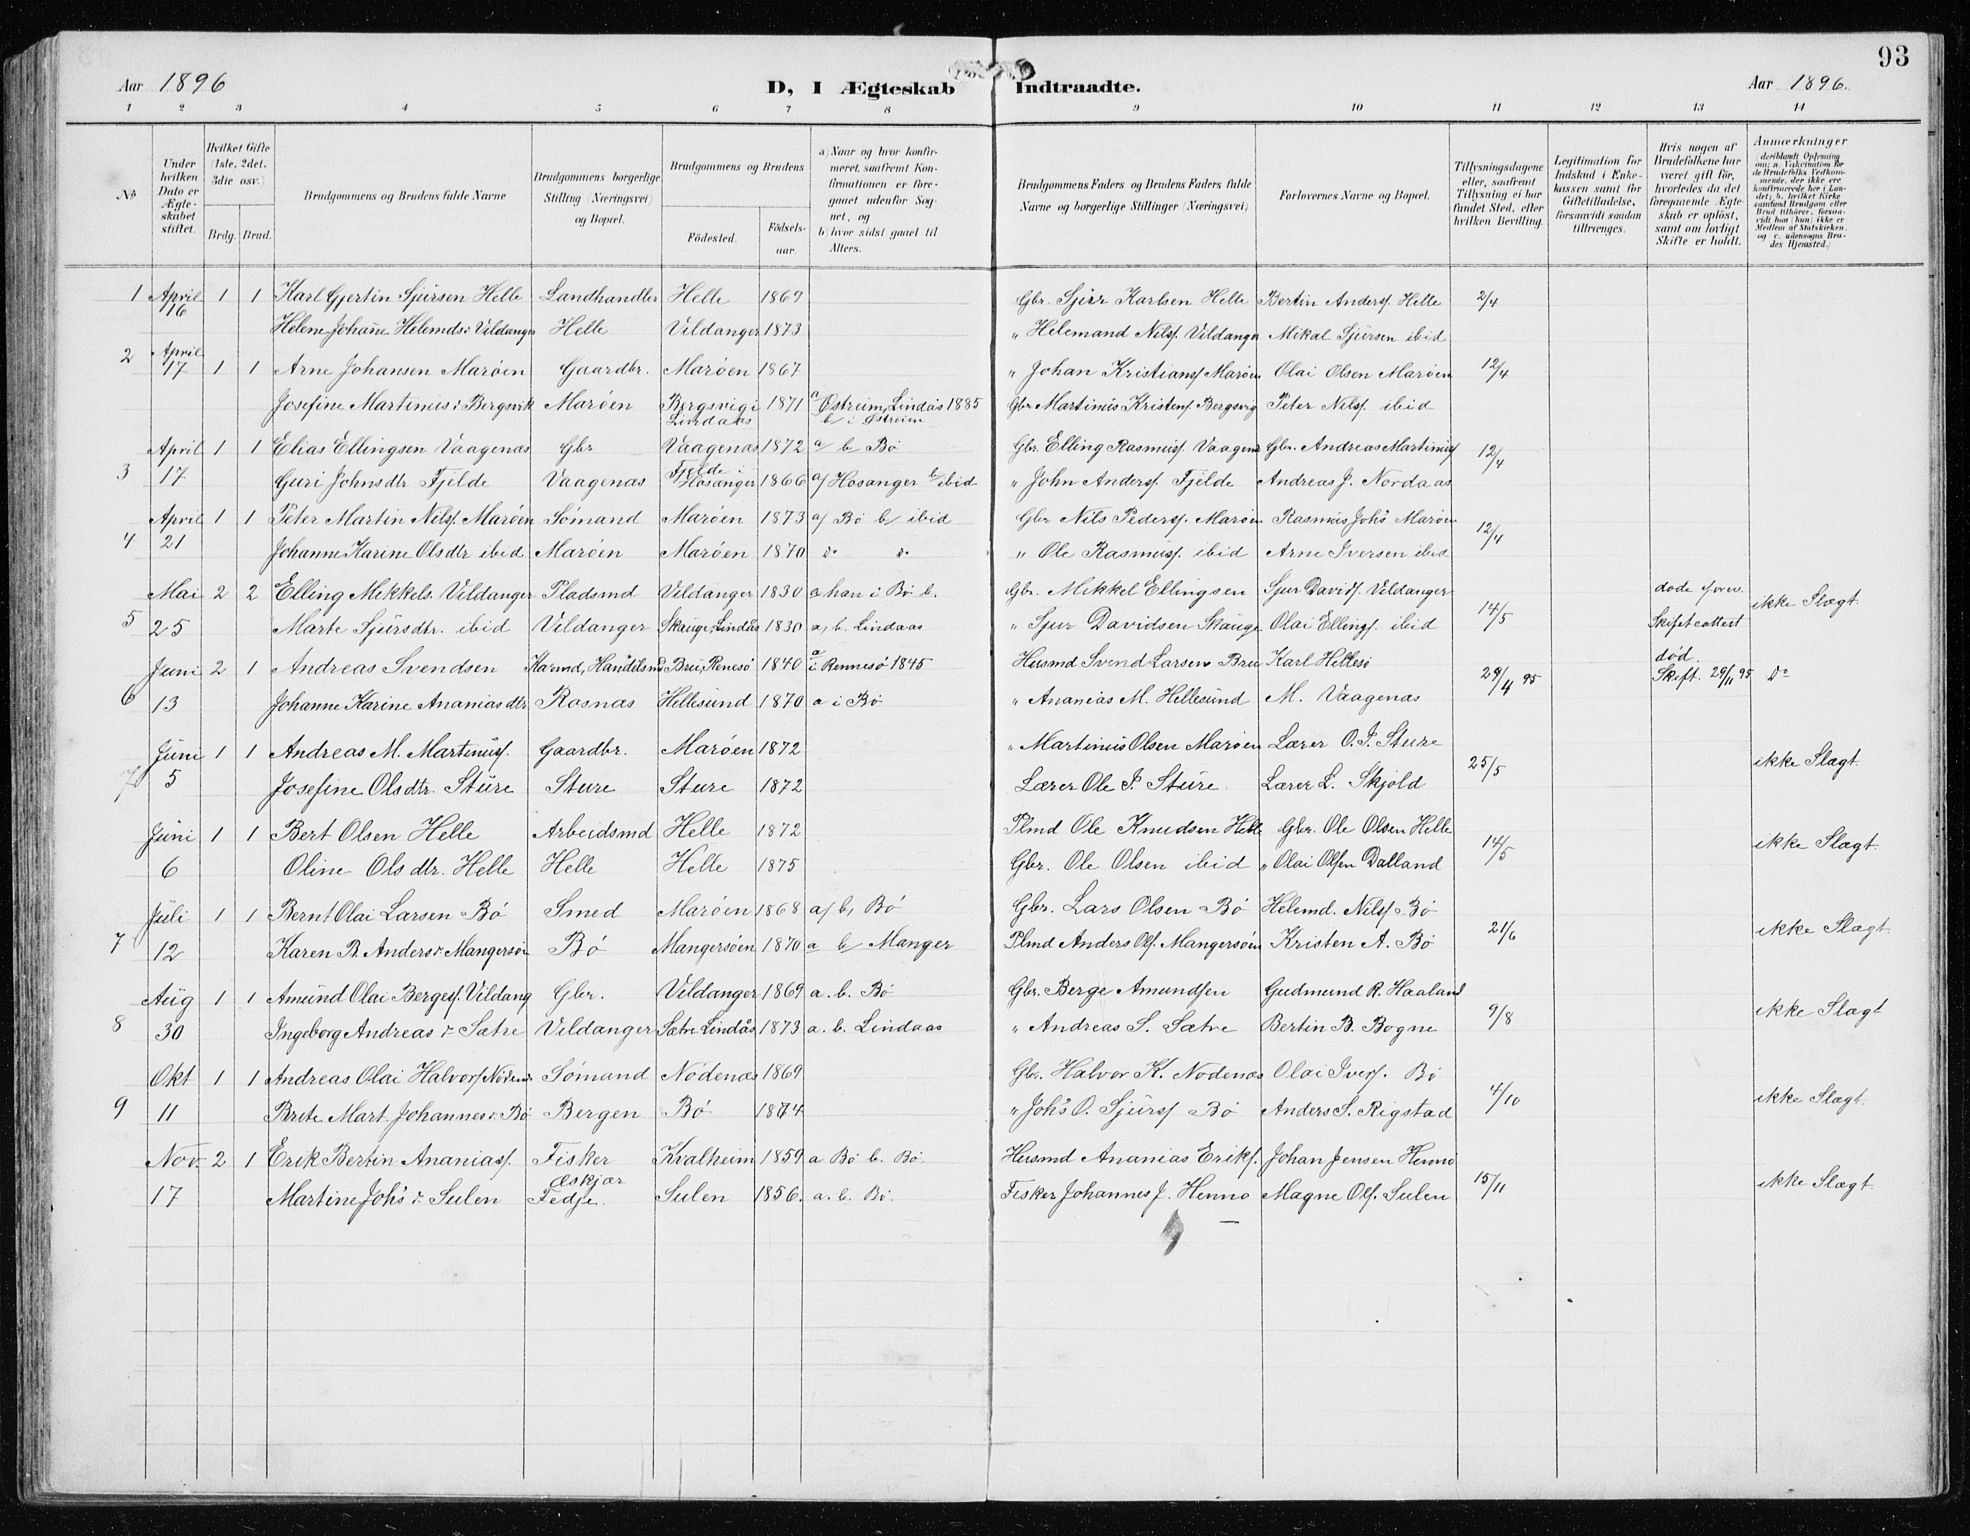 93
Aar 1896 D, I Ægteskab Indtraadte. Aar 1896.
1 2 3 4 5 6 7 8 9 10 11 12 13 14
No
Under hvilken Dato er Ægteskabet stiftet.
Hvilket Gifte (1ste, 2det, 3die osv.)
Brdg. Brud.
Brudgommens og Brudens fulde Navne
Brudgommens borgerlige Stilling (Næringsvei) og Bopæl.
Brudgommens og Brudens
Fødested. Fødselsaar.
a) Naar og hvor konfirmeret, saafremt Konfirmationen er foregaaet udenfor Sognet, og
b) hvor sidst gaaet til Alters.
Brudgommens Faders og Brudens Faders fulde Navne og borgerlige Stillinger (Næringsvei)
Forlovernes Navne og Bopæl.
Tillysningsdagene eller, saafremt Tillysning ei har fundet Sted, efter hvilken Bevilling.
Legitimation for Indskud i Enkekassen samt for Giftetilladelse, forsaavidt saadan tiltrænges.
Hvis nogen af Brudefolkene har været gift før, hvorledes da det foregaaende Ægteskab er opløst, samt om lovligt Skifte er holdt.
Anmærkninger
(deriblandt Oplysning om: a. Vakcination for de Brudefolks Vedkommende, der ikke ere konfirmerede her i Landet; b. hvilket Kirkesamfund Brudgom eller Brud tilhører, forsaavidt han (hun) ikke er Medlem af Statskirken, og c. udensogns Brudes Hjemsted.)
1 April 1 1 Karl Gjertin Sjursen Helle Landhandler Helle 1869 Gbr. Sjur Karlsen Helle Bertin Anders. Helle 2/4
16 Helene Johane Helemds. Vildanger Helle Vildanger 1873 " Helemand Nils. Vildanger Mikal Sjursen ibid
2 April 17 1 1 Arne Johansen Marøen Gaardbr. Marøen 1867 " Johan Kristians. Marøen Olai Olsen Marøen 12/4
Josefine Martinus d. Bergsvik Marøen Bergsvig i Lindaas 1871 a Østreim, Lindås 1885 b i Østreim Gbr Martinus Kristens. Bergsvig Peter Nils. ibid
April 1 1 Elias Ellingsen Vaagenæs Gbr Vaagenæs 1872 a b Bø Gbr. Elling Rasmus. Vaagenæs Gbr. Andreas Martinus. 12/4
3 17 Guri Johnsdtr Fjelde Vaagenæs Fjelde i Hosanger 1866 a/ Hosanger b/ ibid " John Anders. Fjelde Andreas J. Nordaas
April 1 1 Peter Martin Nils. Marøen Sømand Marøen 1873 a/ Bø b/ ibid Gbr Nils Peders. Marøen Rasmus Johs Marøen 12/4
4 21 Johanne Karine Olsdtr ibid Marøen Marøen 1870 do do " Ole Rasmus. ibid Arne Iversen ibid
Mai 2 2 Elling Mikkels. Vildanger Pladsmd Vildanger 1830 a han i Bø b. Gbr. Mikkel Ellingsen Sjur Davids. Vildanger døde 14/5 ikke Slægt.
5 25 Marte Sjursdtr. ibid Vildanger Skauge, Lindås 1830 a, b. Lindaas " Sjur Davidsen Skauge Olai Ellings. ibid Skifteattest
Juni 2 1 Andreas Svendsen Handelsmd Bru, Renesø 1840 a i Rennesø 1845 Husmd Svend Larsen Bru Karl Hellesø 29/4 95 død. Skift. 29/11 95 do
6 13 Johanne Karine Ananiasdtr Rosnæs Hellesund 1870 a i Bø " Ananias M. Hellesund M. Vaagenæs
Juni 1 1 Andreas M. Martinus. Gaardbr. Marøen 1872 " Martinus Olsen Marøen Lærer O. P. Sture 25/5 ikke Slægt.
7 5 Josefine Olsdtr. Sture Sture Sture 1872 Lærer Ole P. Sture. Lærer L. Skjold
Juni 1 1 Bert Olsen Helle Arbeidsmd Helle 1872 Plmd Ole Knudsen Helle Gbr. Ole Olsen Helle 14/5 ikke Slægt.
6 Oline Olsdtr. Helle Helle Helle 1875 Gbr. Ole Olsen ibid " Olai Olsen Dalland
Juli 1 1 Bernt Olai Larsen Bø Smed Marøen 1868 a/ b, Bø Gbr. Lars Olsen Bø Helemd. Nils. Bø 21/6 ikke Slægt.
7 12 Karen B. Anders d. Mangersøen Bø Mangersøen 1870 a b/ Manger Plmd Anders Ols. Mangersøen Kristen A. Bø
Aug 1 1 Amund Olai Berges. Vildang Gbr. Vildanger 1869 a. b. Bø Gbr. Berge Amundsen Gudmund R. Haaland 9/8 ikke Slægt
8 30 Ingeborg Andreas d. Sætre Vildanger Sætre Lindås 1873 a. b. Lindaas " Andreas S. Sætre Bertin B. Bogne
Okt 1 1 Andreas Olai Halvors. Nødenæs Sømand Nødenæs 1869 Gbr. Halvor K. Nødenæs Olai Ivers. Bø 4/10 ikke Slægt.
9 11 Brite Mart. Johannes d. Bø Bergen Bø 1874 " Johs O. Sjurs. Bø Anders S. Rigstad
Nov. 2 1 Erik Bertin Ananias. Fisker Kvalheim 1859 a Bø b. Bø. Husmd Ananias Eriks. Johan Jensen Henno 15/11 ikke Slægt.
17 Martine Johs d. Sulen Æskjær Fedje. Sulen 1856. a. b. Bø. Fisker Johannes J. Henno Magne Ols. Sulen